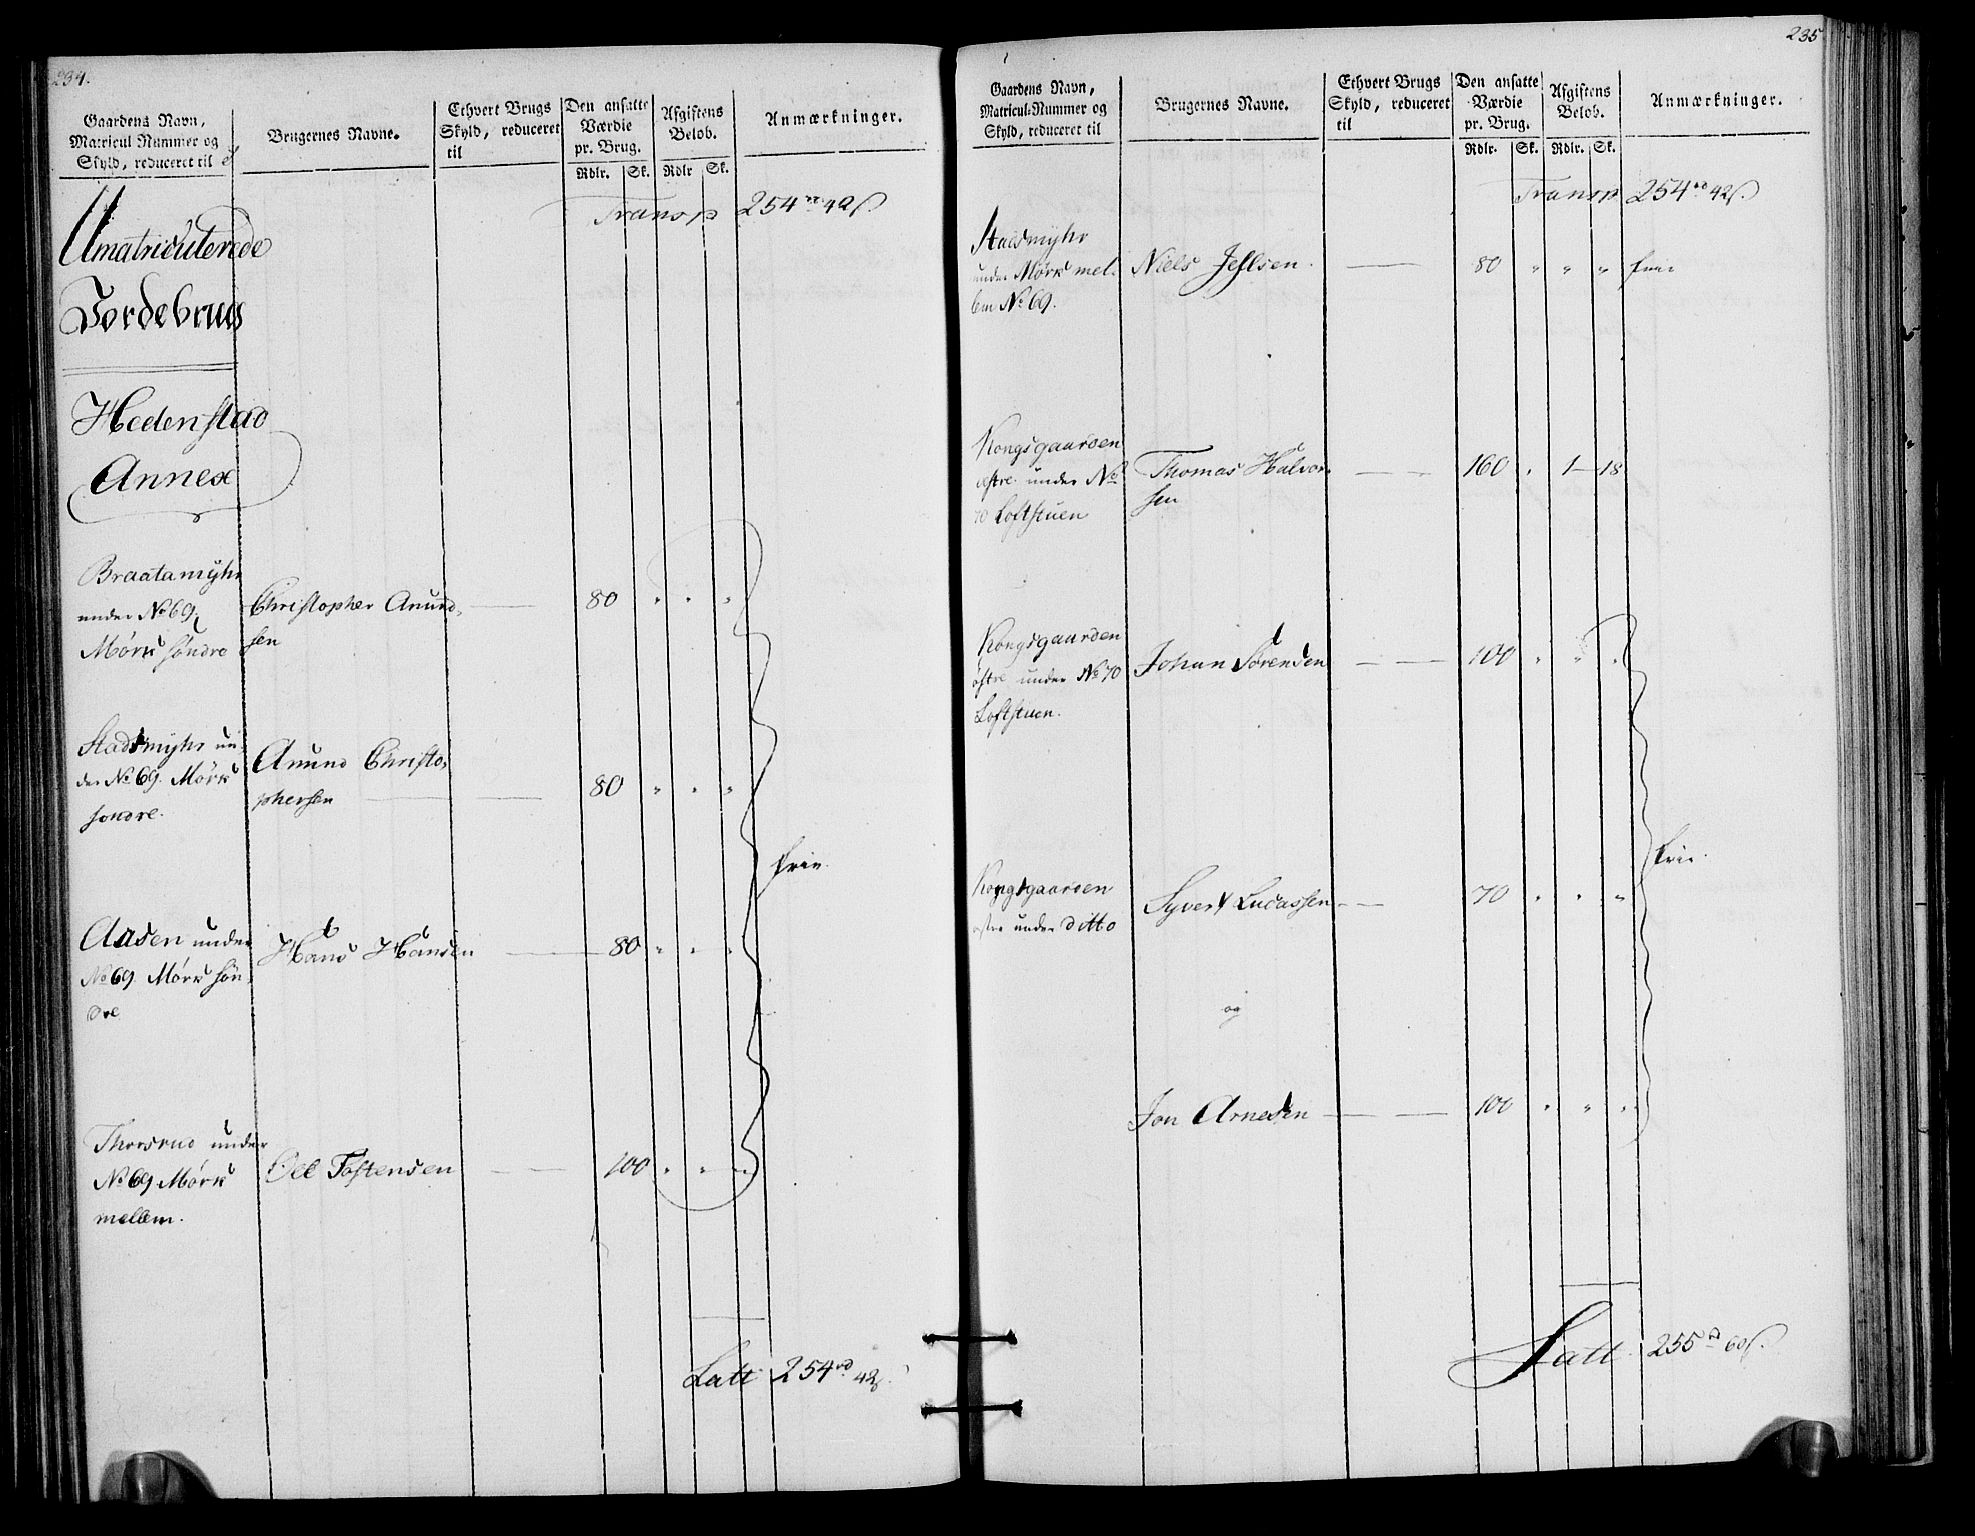 234.
Gaardens Navn,
Matricul Nummer og
Skyld, reduceret til
Brugernes Navne.
Ethvert Brugs
Skyld, reduceret
til
Den ansatte
Værdie
pr. Brug.
Rdlr. Sk.
Afgiftens
Belob.
Rdlr Sk.
Anmærkninger.
Transp 254 rd 42 s.
Umatriculerede
Jordebrug
Hedenstad
Annex
Braatamyhr
under No 69
Mørk søndre
Christopher Anund-
sen
80 " " "
Stadsmyhr un-
der No 69. Mørk
søndre.
Anund Christo-
phersen
80 " " "
frie.
Aasen under
No 69. Mørk søn-
dre
Hans Hansen
80 " " "
Thorsrud under
No 69 Mørk
mellem.
Ole Tostensen
100 " " "
Latt 254 rd 42 s.
235
Gaardens Navn,
Matricul-Nummer og
Skyld, reduceret til
Brugernes Navne.
Ethvert Brugs
Skyld, reduceret
til
Den ansatte
Værdie
pr. Brug.
Rdlr. Sk.
Afgiftens
Belob.
Rdlr. Sk.
Anmærkninger.
Transp 254 rd 42 s.
Stadsmyhr
under Mørk mel-
lem No 69.
Niels Jeslsen.
80 " " " frie
Kongsgaarden
østre under No
70 Loftstuen
Thomas Halvor-
sen
160 " 1 - 18
Kongsgaarden
østre under No 70
Loftstuen.
Johan Sørensen
100 " " "
frie.
Kongsgaarden
østre under ditto
Syvert Lucassen
70 " " "
og
Jon Arnesen
100 " " "
Latt 255 rd 60 s.